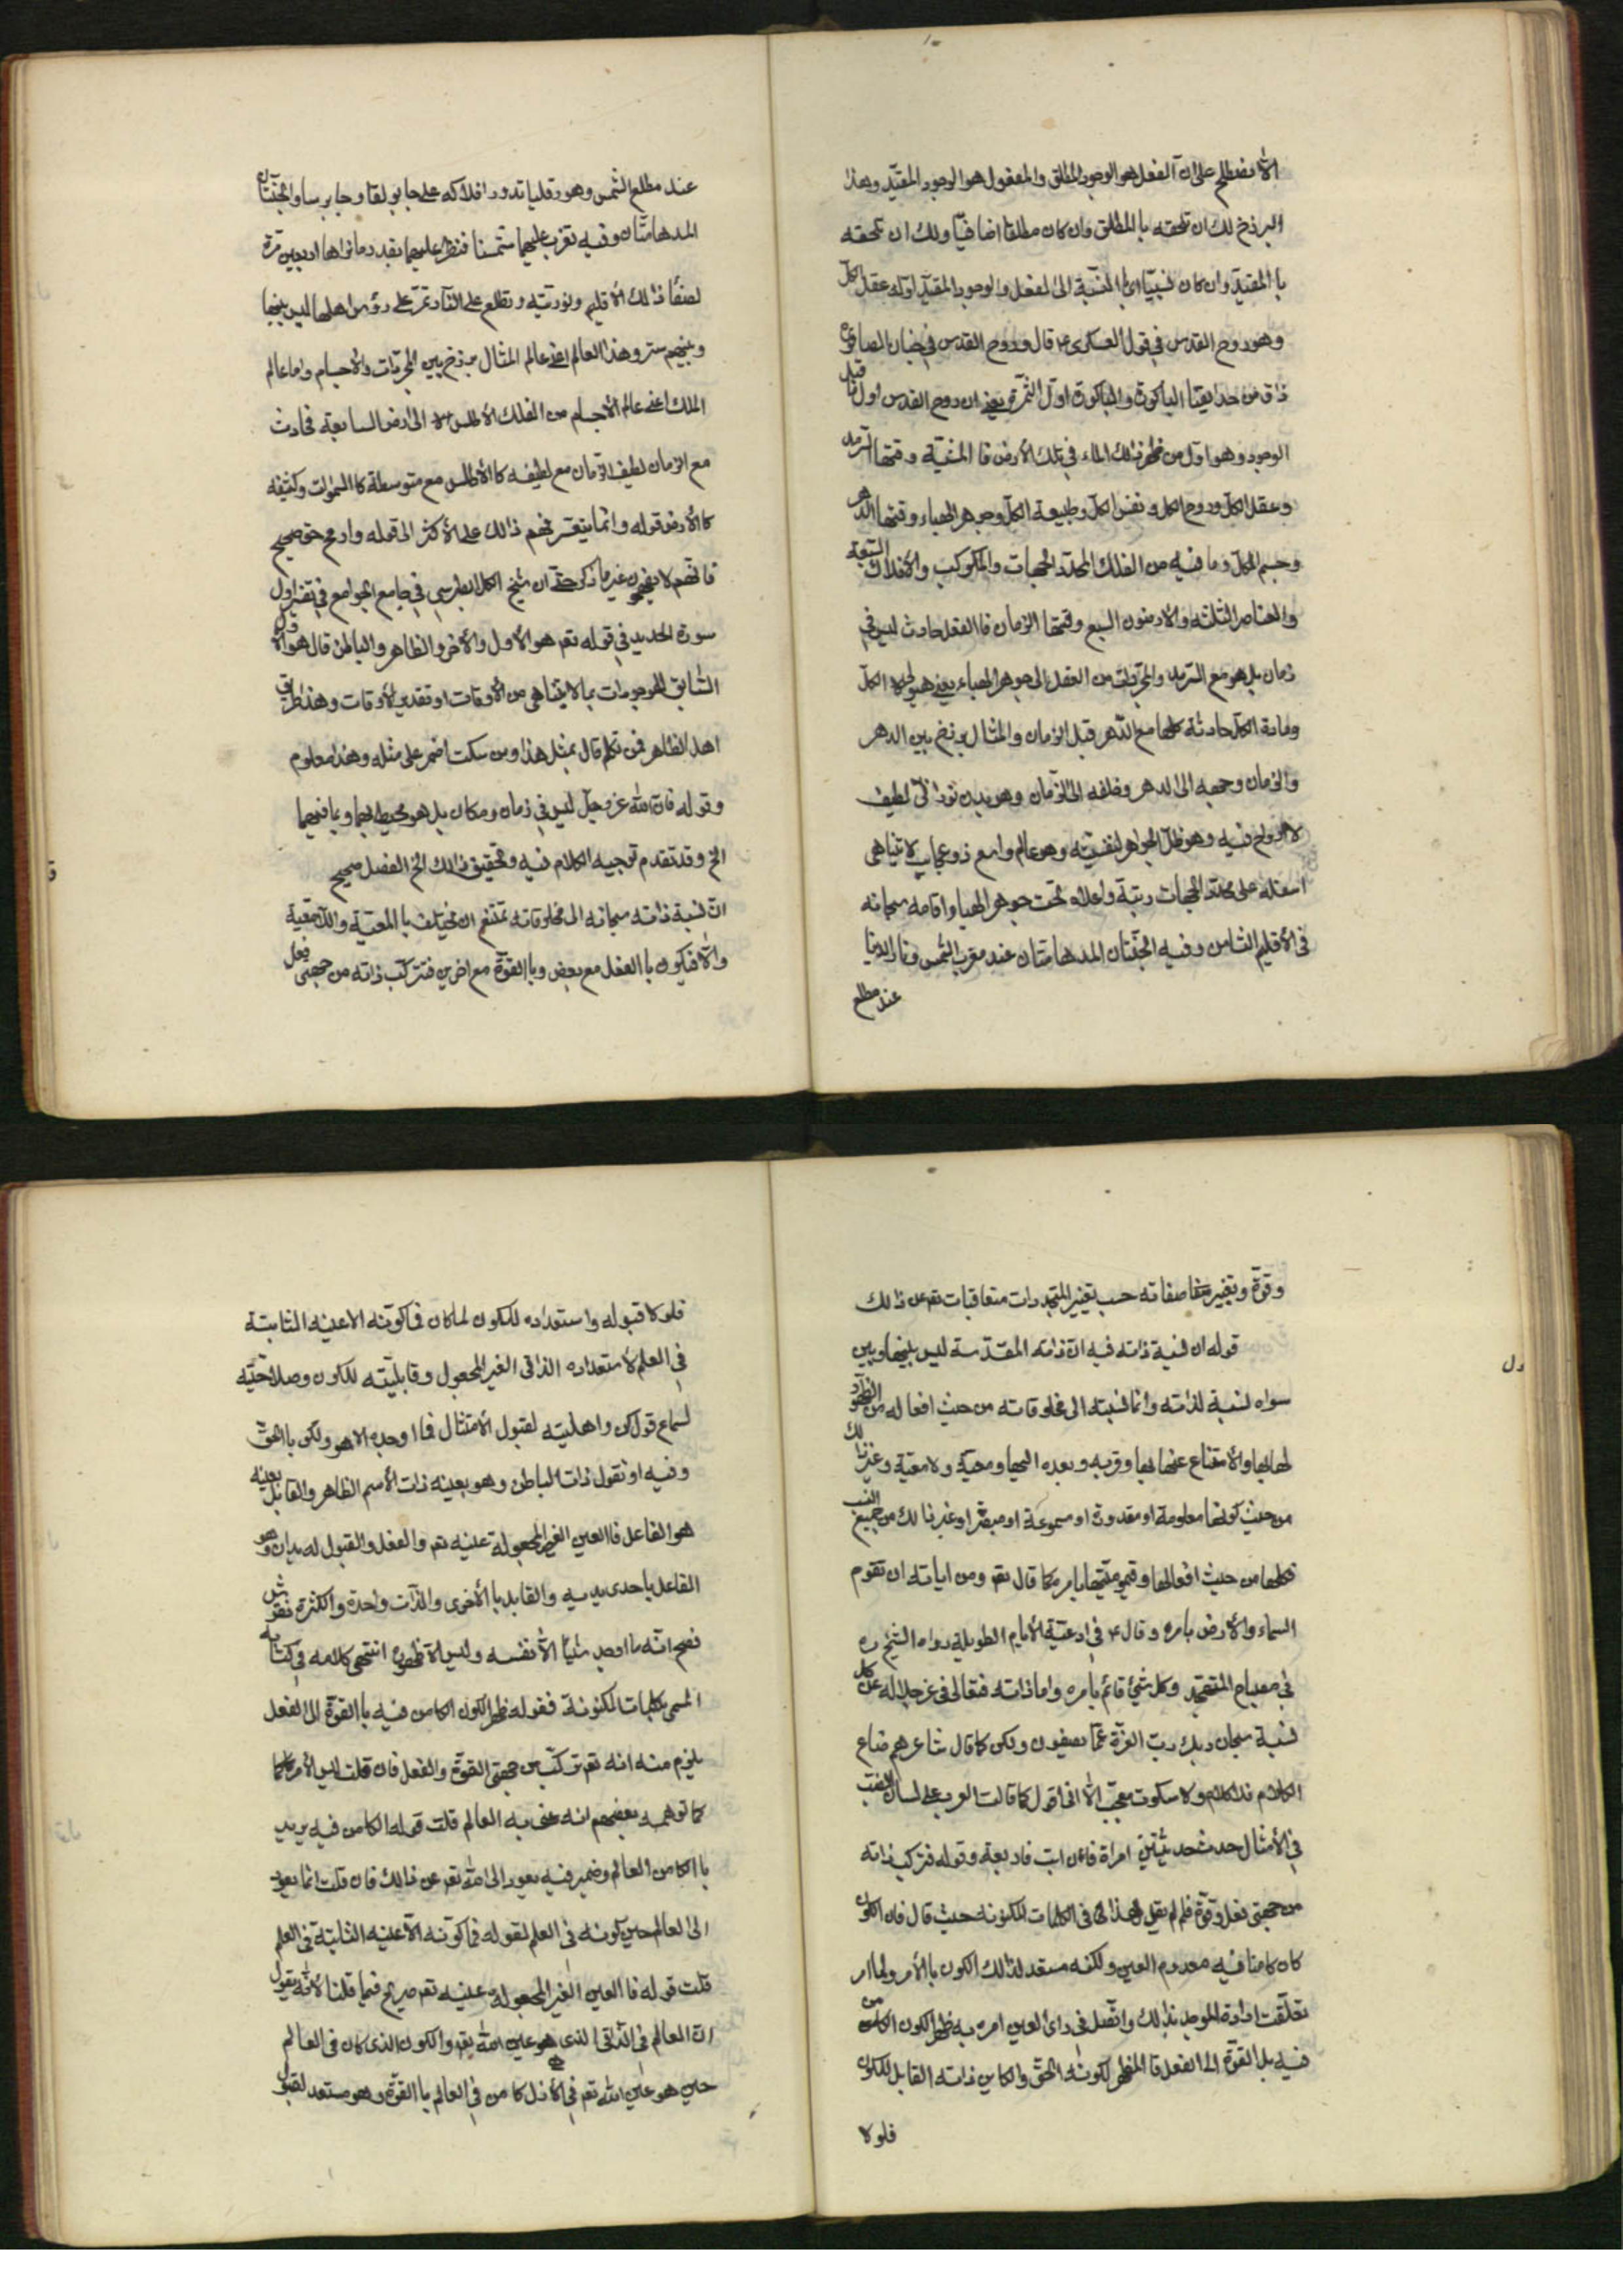 الا نصطلح على ان الفعل هو الوجود المطلق والمفعول هو الوجود المقيّد وهذا
البرزخ لك ان تلحقه با المطلق وان كان مطلقا اضافيّا ولك ان تلحقه
با المقيّد وان كان نسبيّا اى با النسبة الى الفعل والوجود المقيّد اوّله عقل الكلّ
وهو روح القدس فى قول العسكرى ع قال وروح القدس فى جنان الصاقورة
ذاق من حدايقنا الباكورة والباكورة اوّل الثمرة يعنى ان روح القدس اول ما قبل
الوجود وهو اوّل من ذلك الماء فى تلك الأرض فا المشيّة وقتها السرمد
وعقل الكلّ وروح الكل ونفس الكلّ وطبيعة الكلّ وجوهر الهباء وقتها الدهر
وجسم الكلّ وما فيه من الفلك المحدّد الجهات والمكوكب والأفلاك السبعة
والعناصر الثلثه والارضون السبع وقتها الزمان فا الفعل حادث ليس فى
زمان بل هو مع السرمد والمجرّدات من العقل الى جوهر الهباء يعنى هيولى الكلّ
ومادة الكلّ حادثة كلها مع الدّهر قبل الزمان والمثال برزخ بين الدهر
والزمان وجهه الى الدهر وخلفه الى الزّمان وهو بدن نورانىّ لطيف
لا ارواح فيه وهو ظلّ الجواهر النفسيّة وهو عالم واسع ذو عجايب لا تتناهى
اسفله على محدّد الجهات رتبة واعلاه تحت جوهر الهبا واقامه سبحانه
فى الأقليم الثامن وفيه الجنّتان المدهامّتان عند مغرب الشّمس ونار الدنيا
عند مطلع
عند مطلع الشمس وهورقليا تدور افلاكه على جابولقا وجابرسا والجنّتان
المدهامّتان وفيه تغرب عليهما شمسنا فنظر عليهما بقدر دمانراها اربعين مرّة
لصفآ ذلك الأقليم ونوريّته وتطلع على النّار تمرّ على رؤس اهلها ليس بينها
وبينهم ستر وهذا العالم اعنى عالم المثال برزخ بين المجرّدات والأجسام واما عالم
الملك اعنى عالم الأجسام من الفلك الأطلس الى ارض السابعة فحادث
مع الزمان لطيف الزّمان مع لطيفه كا الأطلس مع متوسطه كا السموات وكثيفه
كا الأرض قوله وانما يتعسّر فهم ذلك على الأكثر الى قوله وارجح حق صحيح
فانهم لا يفهمون غير ما ذكر حتّى ان شيخ الكلّ الطبرسى فى جامع الجوامع فى تفسير اول
سورة الحديد فى قوله تعم هو الأول والأخر والظاهر والباطن قال هو الأول
السّابق للموجودات بما لا يتناهى من الأوقات او تقدير الأوقات وهذا طريق
اهل الظاهر فمن تكلم قال بمثل هذا ومن سكت اضمر على مثله وهذا معلوم
وقوله فان الله عز وجل ليس فى زمان ومكان بل هو محيط بهما وبما فيهما
الخ وقد تقدم توجيه الكلام فيه وتحقيق ذلك الخ الفصل صحيح
انّ نسبة ذاته سبحانه الى مخلوقاته تمتنع ان تختلف با المعيّة واللّامعية
والّا فيكون با الفعل مع بعض وبا القوّة مع اخرين فتتركّب ذاته من جهتى فعل
وقوّة وبتغيير صفاته حسب تغيير المتجددات متعاقبات تعم عن ذلك
قوله ان نسبة ذاته فيه ان ذاته المقدّسة ليس بينها وبين
سواه نسبة لذاته وانما نسبته الى مخلوقاته من حيث افعاله من الظهور
لها بها والأمتناع عنها بها وقربه وبعده اليها ومعية ولا معيّة وغير ذلك
من حيث كونها معلومة او مقدورة او مسموعة او مبصرة او غير ذلك من جميع النسب
كلها من حيث افعالها وقيوميّتها بامره كما قال تعم ومن اياته ان تقوم
السماء والأرض بامره وقال ع فى ادعية الأيام الطويلة رواه الشيخ ره
فى مصباح المتهجد وكل شئ قائم بامره واما ذاته فتعالى فى عز جلاله عن كل
نسبة سبحان ربك ربّ العزة عمّا يصفون ولكن كما قال شاعرهم ضاع
الكلام فلا كلام ولا سكوت معجب الّا انى اقول كما قالت العرب على لسان الضب
فى الأمثال حدث حديثين امراة فان ابت فاربعة وقوله فتركيب ذاته
من جهتى فعل وقوّة فلم لم يقل بهذا فى الكلمات المكنونه حيث قال فان الكون
كان كامنا فيه معدوم العين ولكنه مستعد لذلك الكون با الأمر ولما امر
تعلّقت ارادة الموجد بذلك واتّصل فى راى العين امره به ظهر الكون الكامن
فيه با القوّة الى الفعل فا المظهر لكونه الحقّ والكاين ذاته القابل للكون
فلولا
فلولا قبوله واستعداده للكون لما كان فما كوّنه الا عينه الثابتة
فى العلم لأستعداده الذاتى الغير المجعول وقابليّته للكون وصلاحيّته
لسماع قول كن واهليته لقبول الأمتثال فما اوجده الا هو ولكن با الحقّ
وفيه او نقول ذات الباطن وهو بعينه ذات الأسم الظاهر والقابل بعينه
هو الفاعل فا العين الغير المجعولة عينه تعم والفعل والقبول له يدان وهو
الفاعل باحدى يديه والقابل با الأخرى والذّات واحدة والكثرة نقوش
فصح انّه ما اوجد شيئا الّا نفسه وليس الّا ظهوره انتهى كلامه فى كتابه
المسمى بكلمات المكنونة فقوله ظهر الكون الكامن فيه با القوّة الى الفعل
يلزم منه انه تعم تركّب من جهتى القوّة والفعل فان قلت ليس الأمر كما
كما توهمه بعضهم انه عنى به العالم قلت قوله الكامن فيه يريد
با الكامن العالم وضمير فيه يعود الى الله تعم عن ذلك فان قلت انما يعود
الى العالم حين كونه فى العلم لقوله فما كوّنه الّا عينه الثابتة فى العلم
قلت قوله فا العين الغير المجعولة عينه تعم صريح فيما قلنا لأنّه يقول
ان العالم فى الذاتى الذى هو عين الله تعم والكون الذى كان فى العالم
حين هو عين الله تعم فى الأزل كامن فى العالم با القوّة وهو مستعد لقبول